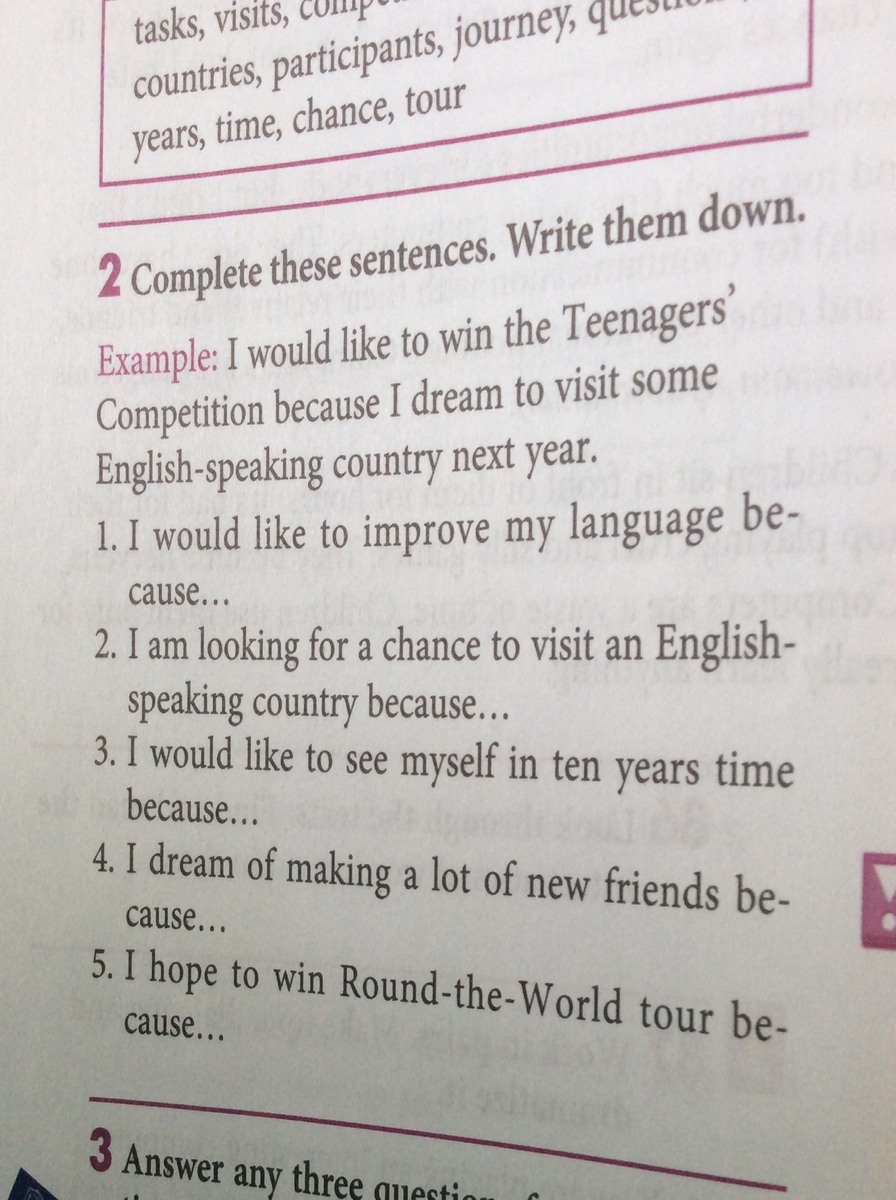 tasks, visits,
countries, participants, journey,
years, time, chance, tour
2 Complete these sentences. Write them down.
Example: I would like to win the Teenagers’
Competition because I dream to visit some
English-speaking country next year.
1. I would like to improve my language be-
cause…
2. I am looking for a chance to visit an English-
speaking country because…
3. I would like to see myself in ten years time
because…
4. I dream of making a lot of new friends be-
cause…
5. I hope to win Round-the-World tour be-
cause…
3 Answer any three